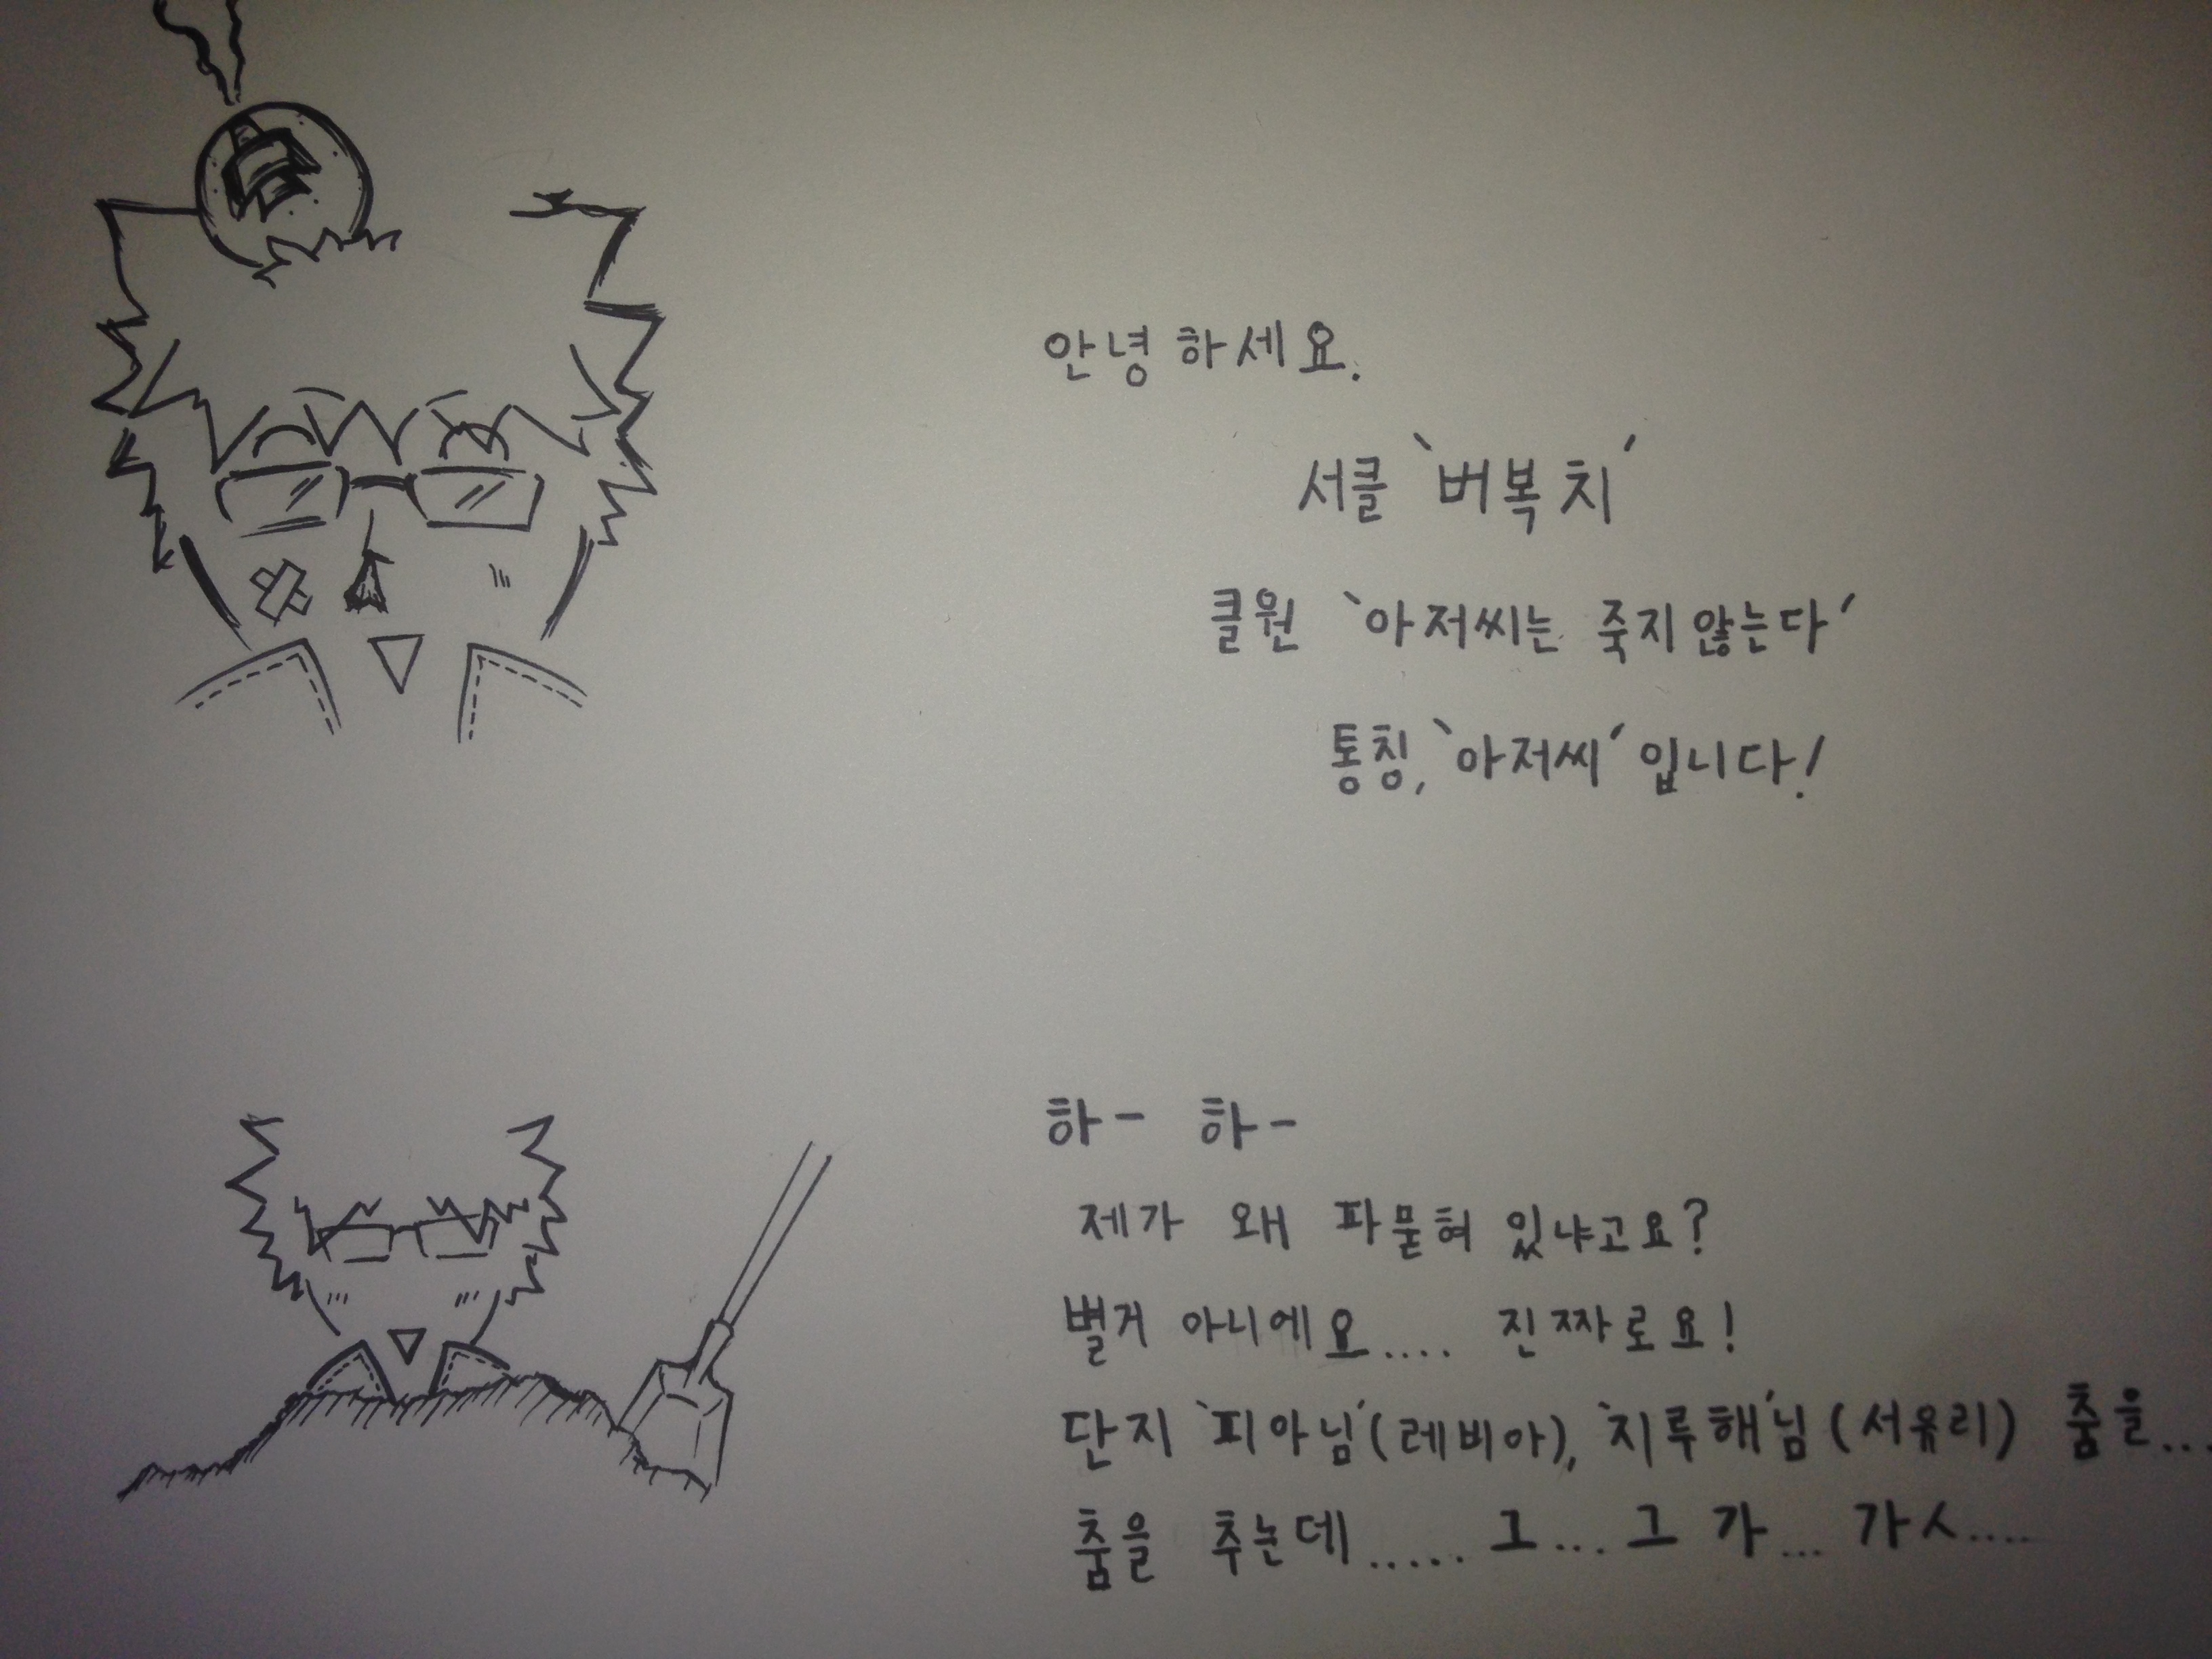 안녕하세요.
서클 `버복치´
클원 `아저씨는 죽지않는다´
통칭, `아저씨´ 입니다!
하- 하-
제가 왜 파묻혀 있냐고요?
별거 아니에요.... 진짜로요!
단지 `피아님´(레비아), `지루해´님 (서유리) 춤을...
춤을 추는데...... 그... 그 가... 가ㅅ....